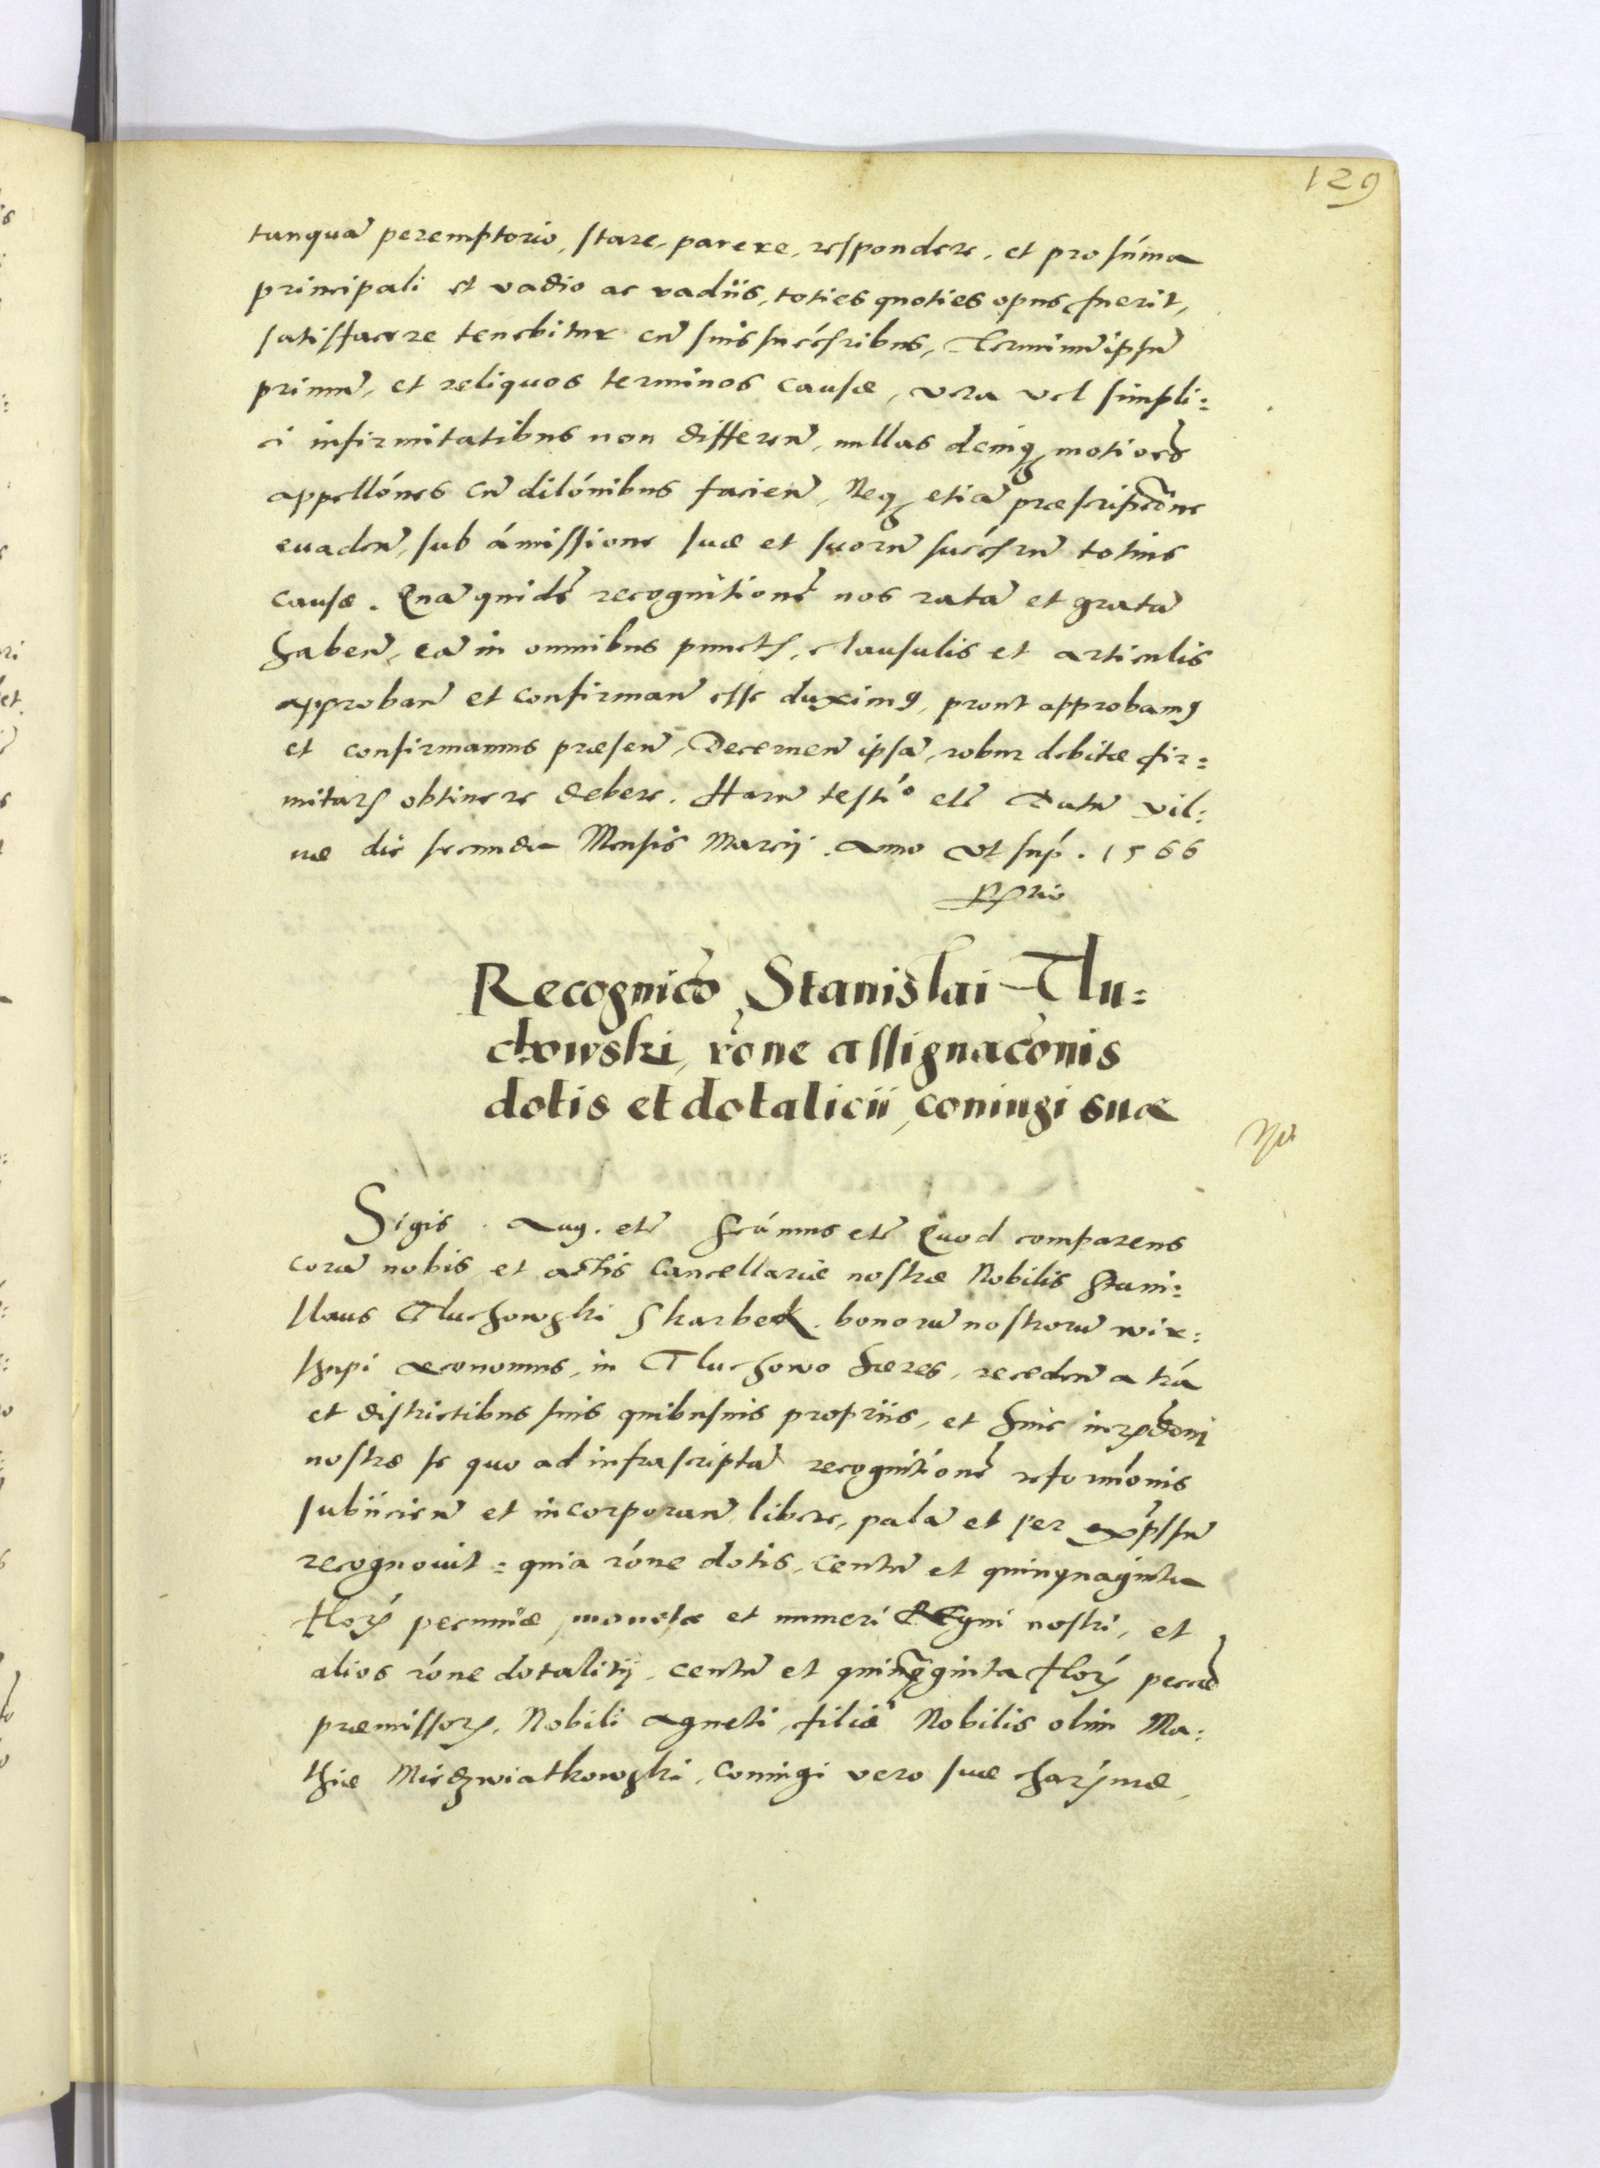 129
tanquã peremptorio, stare, parere, respondere, et pro sũma
principali et vadio ac vadiis, toties quoties opus fuerit,
satisfacere tenebitur cũ suis succ̃sribus, Terminũ ipsũ
primũ, et reliquos terminos causæ, vera vel simpli:
ci infirmitatibus non differeñ, nullas deniqȝ motiones
appellõnes cũ dilõnibus facieñ, Neqȝ etiã præscriptiõne
euadeñ, sub ámissione suæ et suorũ succ̃srũ totius
causæ. Quã quidẽ recognitionẽ nos ratã et gratã
habeñ, eã in omnibus punctꝭ, clausulis et articulis
approbañ et confirmañ esse duximꝰ, prout approbamꝰ
et confirmamus præseñ, Decerneñ ipsã, robur debitæ fir:
mitatꝭ obtinere debere. Harũ testi̊o etc̃ Datũ Vil:
næ die secunda Mensis Marcij. Anno vt sup̃. 1566
Recognic̃o Stanislai Tlu:
chowski, rõne assignac̃onis
dotis et dotalicii, coniugi suæ
Sigis. Aug. etc̃ Scámus etc̃ Quod comparens
corã nobis et actis Cancellariæ nostræ Nobilis Stani:
slaus Tluchowski Skarbek. bonorũ nostrorũ wir:
œconomus, in Tluchowo hæres, recedeñ a trá
et districtibus suis quibusuis propriis, et huic
nostræ se quo ad infrascriptã recognitionẽ reformõnis
subiicieñ et incorporañ libere, palã et per exp̃ssũ
recognouit: quia rõne dotis, centũ et quinquaginta
floꝝ pecuniæ, monetæ et numeri Regni nostri, et
alios rõne dotalitij, centũ et quinq̃ginta floꝝ
præmissoꝝ, Nobili Agneti, filiæ Nobilis olim Ma:
thiæ Miedzwiatkowski, Coniugi vero suæ charꝭmæ,